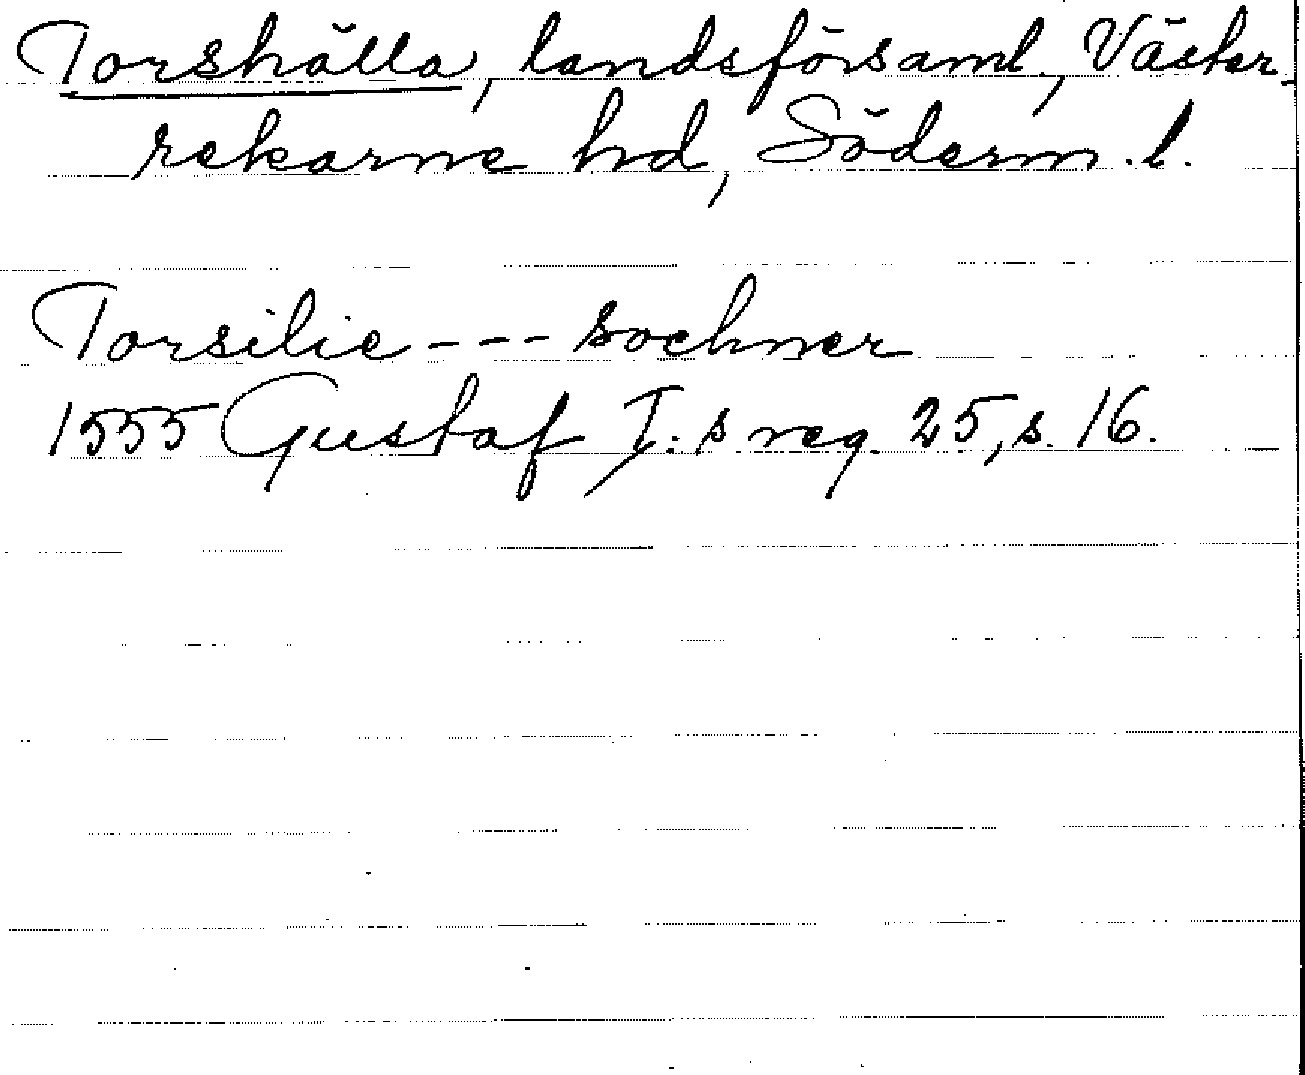 Torshälla, landsförsaml., Väster-
rekarne hd, Söderm. l.
Torsilie --- sochner
1555 Gustaf I:s reg. 25, s. 16.